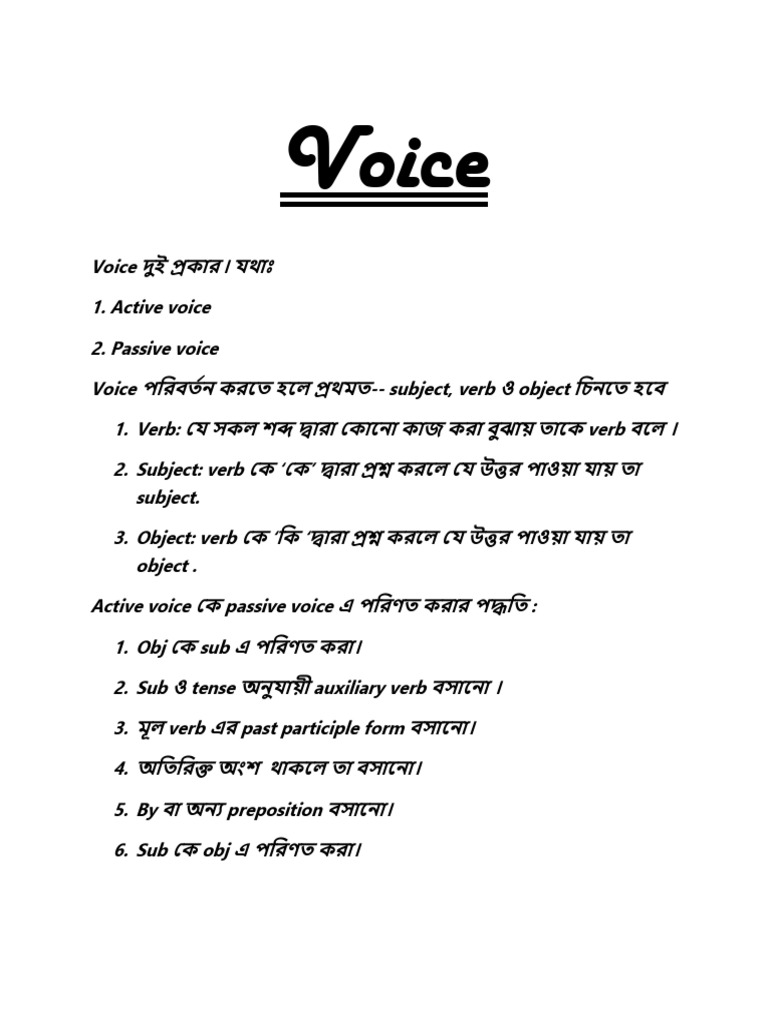 Voice
Voice দুই প্রকার। যথাঃ
1. Active voice
2. Passive voice
Voice পরিবর্তন করতে হলে প্রথমত-- subject, verb ও object চিনতে হবে
1. Verb: যে সকল শব্দ দ্বারা কোনো কাজ করা বুঝায় তাকে verb বলে ।
2. Subject: verb কে ‘কে’ দ্বারা প্রশ্ন করলে যে উত্তর পাওয়া যায় তা
subject.
3. Object: verb কে ‘কি ’দ্বারা প্রশ্ন করলে যে উত্তর পাওয়া যায় তা
object .
Active voice কে passive voice এ পরিণত করার পদ্ধতি :
1. Obj কে sub এ পরিণত করা।
2. Sub ও tense অনুযায়ী auxiliary verb বসানো ।
3. মূল verb এর past participle form বসানো।
4. অতিরিক্ত অংশ থাকলে তা বসানো।
5. By বা অন্য preposition বসানো।
6. Sub কে obj এ পরিণত করা।